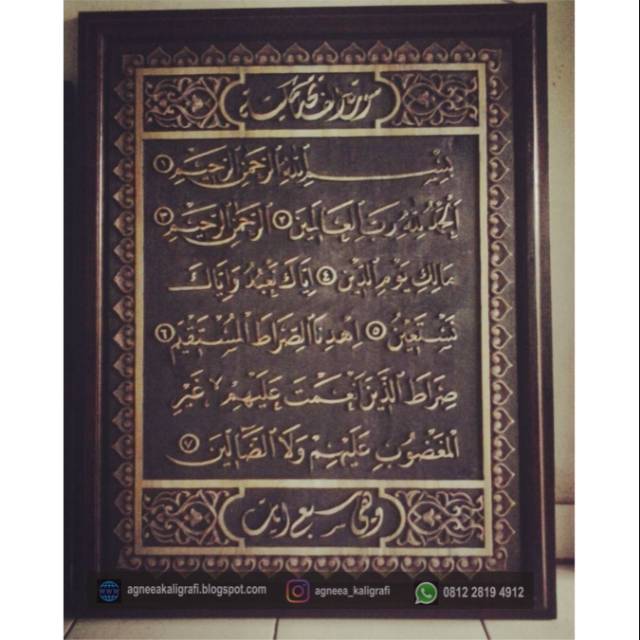 سورة الفاتحة مكية
بِسْمِ اللهِ الرَّحْمٰنِ الرَّحِيْمِ ١
اَلْحَمْدُ لِلّٰهِ رَبِّ الْعَالَمِيْنَ ٢ الرَّحْمٰنِ الرَّحِيْمِ ٣
مَالِكِ يَوْمِ الدِّيْنِ ٤ اِيَّاكَ نَعْبُدُ وَاِيَّاكَ
نَسْتَعِيْنُ ٥ اِهْدِنَا الصِّرَاطَ الْمُسْتَقِيْمَ ٦
صِرَاطَ الَّذِيْنَ اَنْعَمْتَ عَلَيْهِمْ غَيْرِ
الْمَغْضُوْبِ عَلَيْهِمْ وَلَا الضَّالِّيْنَ ٧
وهي سبع ايات
agneeakaligrafi.blogspot.com agneea_kaligrafi 0812 2819 4912